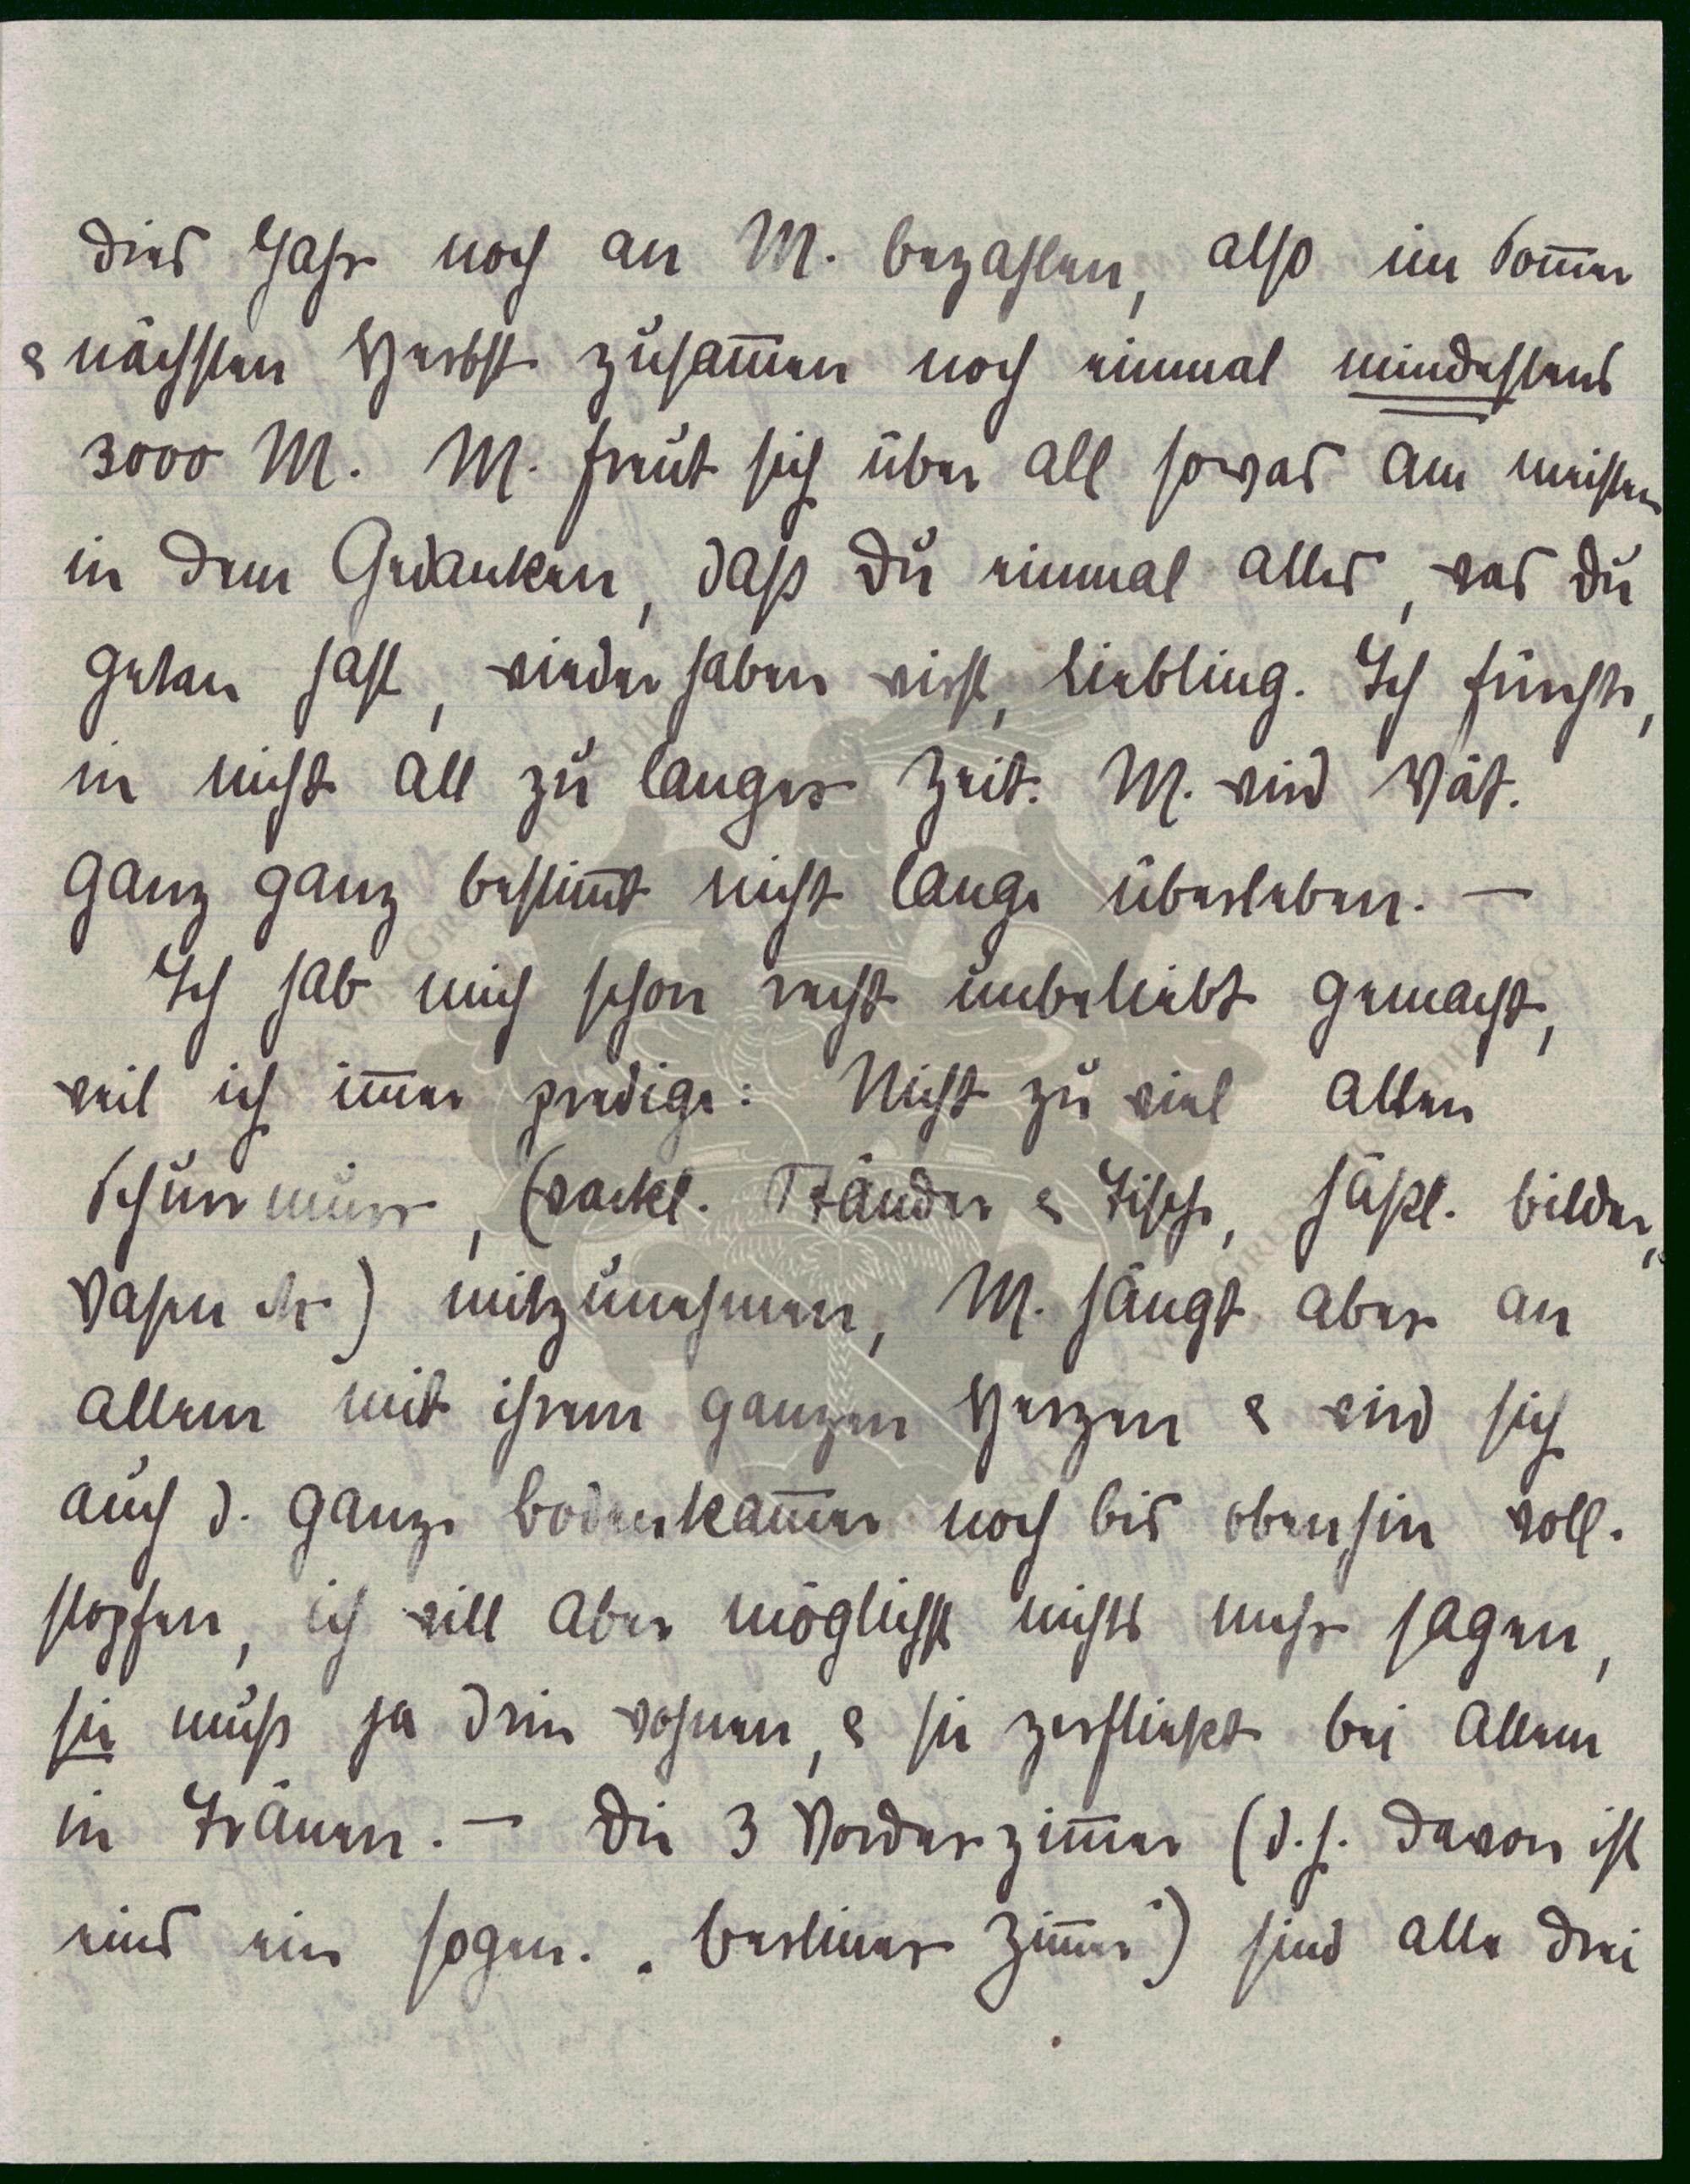 dies Jahr noch an M. bezahlen, also im Som̅er
& nächsten Herbst zusam̅en noch einmal mindestens
3000 M. M. freut sich über all sowas am meisten
in dem Gedanken, daß Du einmal alles, was Du
getan hast, wiederhaben wirst, Liebling. Ich fürchte,
in nicht all zu langer Zeit. M. wird Vät.
ganz ganz bestim̅t nicht lange überleben. —
Ich hab mich schon recht unbeliebt gemacht,
weil ich im̅er predige: Nicht zu viel alten
(wackl. Ständer & Tische, häßl. Bilder,
Vasen etc) mitzunehmen, M. hängt aber an
allem mit ihrem ganzen Herzen & wird sich
auch d. ganze Bodenkam̅er noch bis obenhin voll-
stopfen, ich will aber möglichst nichts mehr sagen,
sie muß ja drin wohnen, & sie zerfließt bei allem
in Tränen. — Die 3 Vorderzim̅er (d.h. davon ist
eins ein sogen. „Berliner Zim̅er") sind alle drei